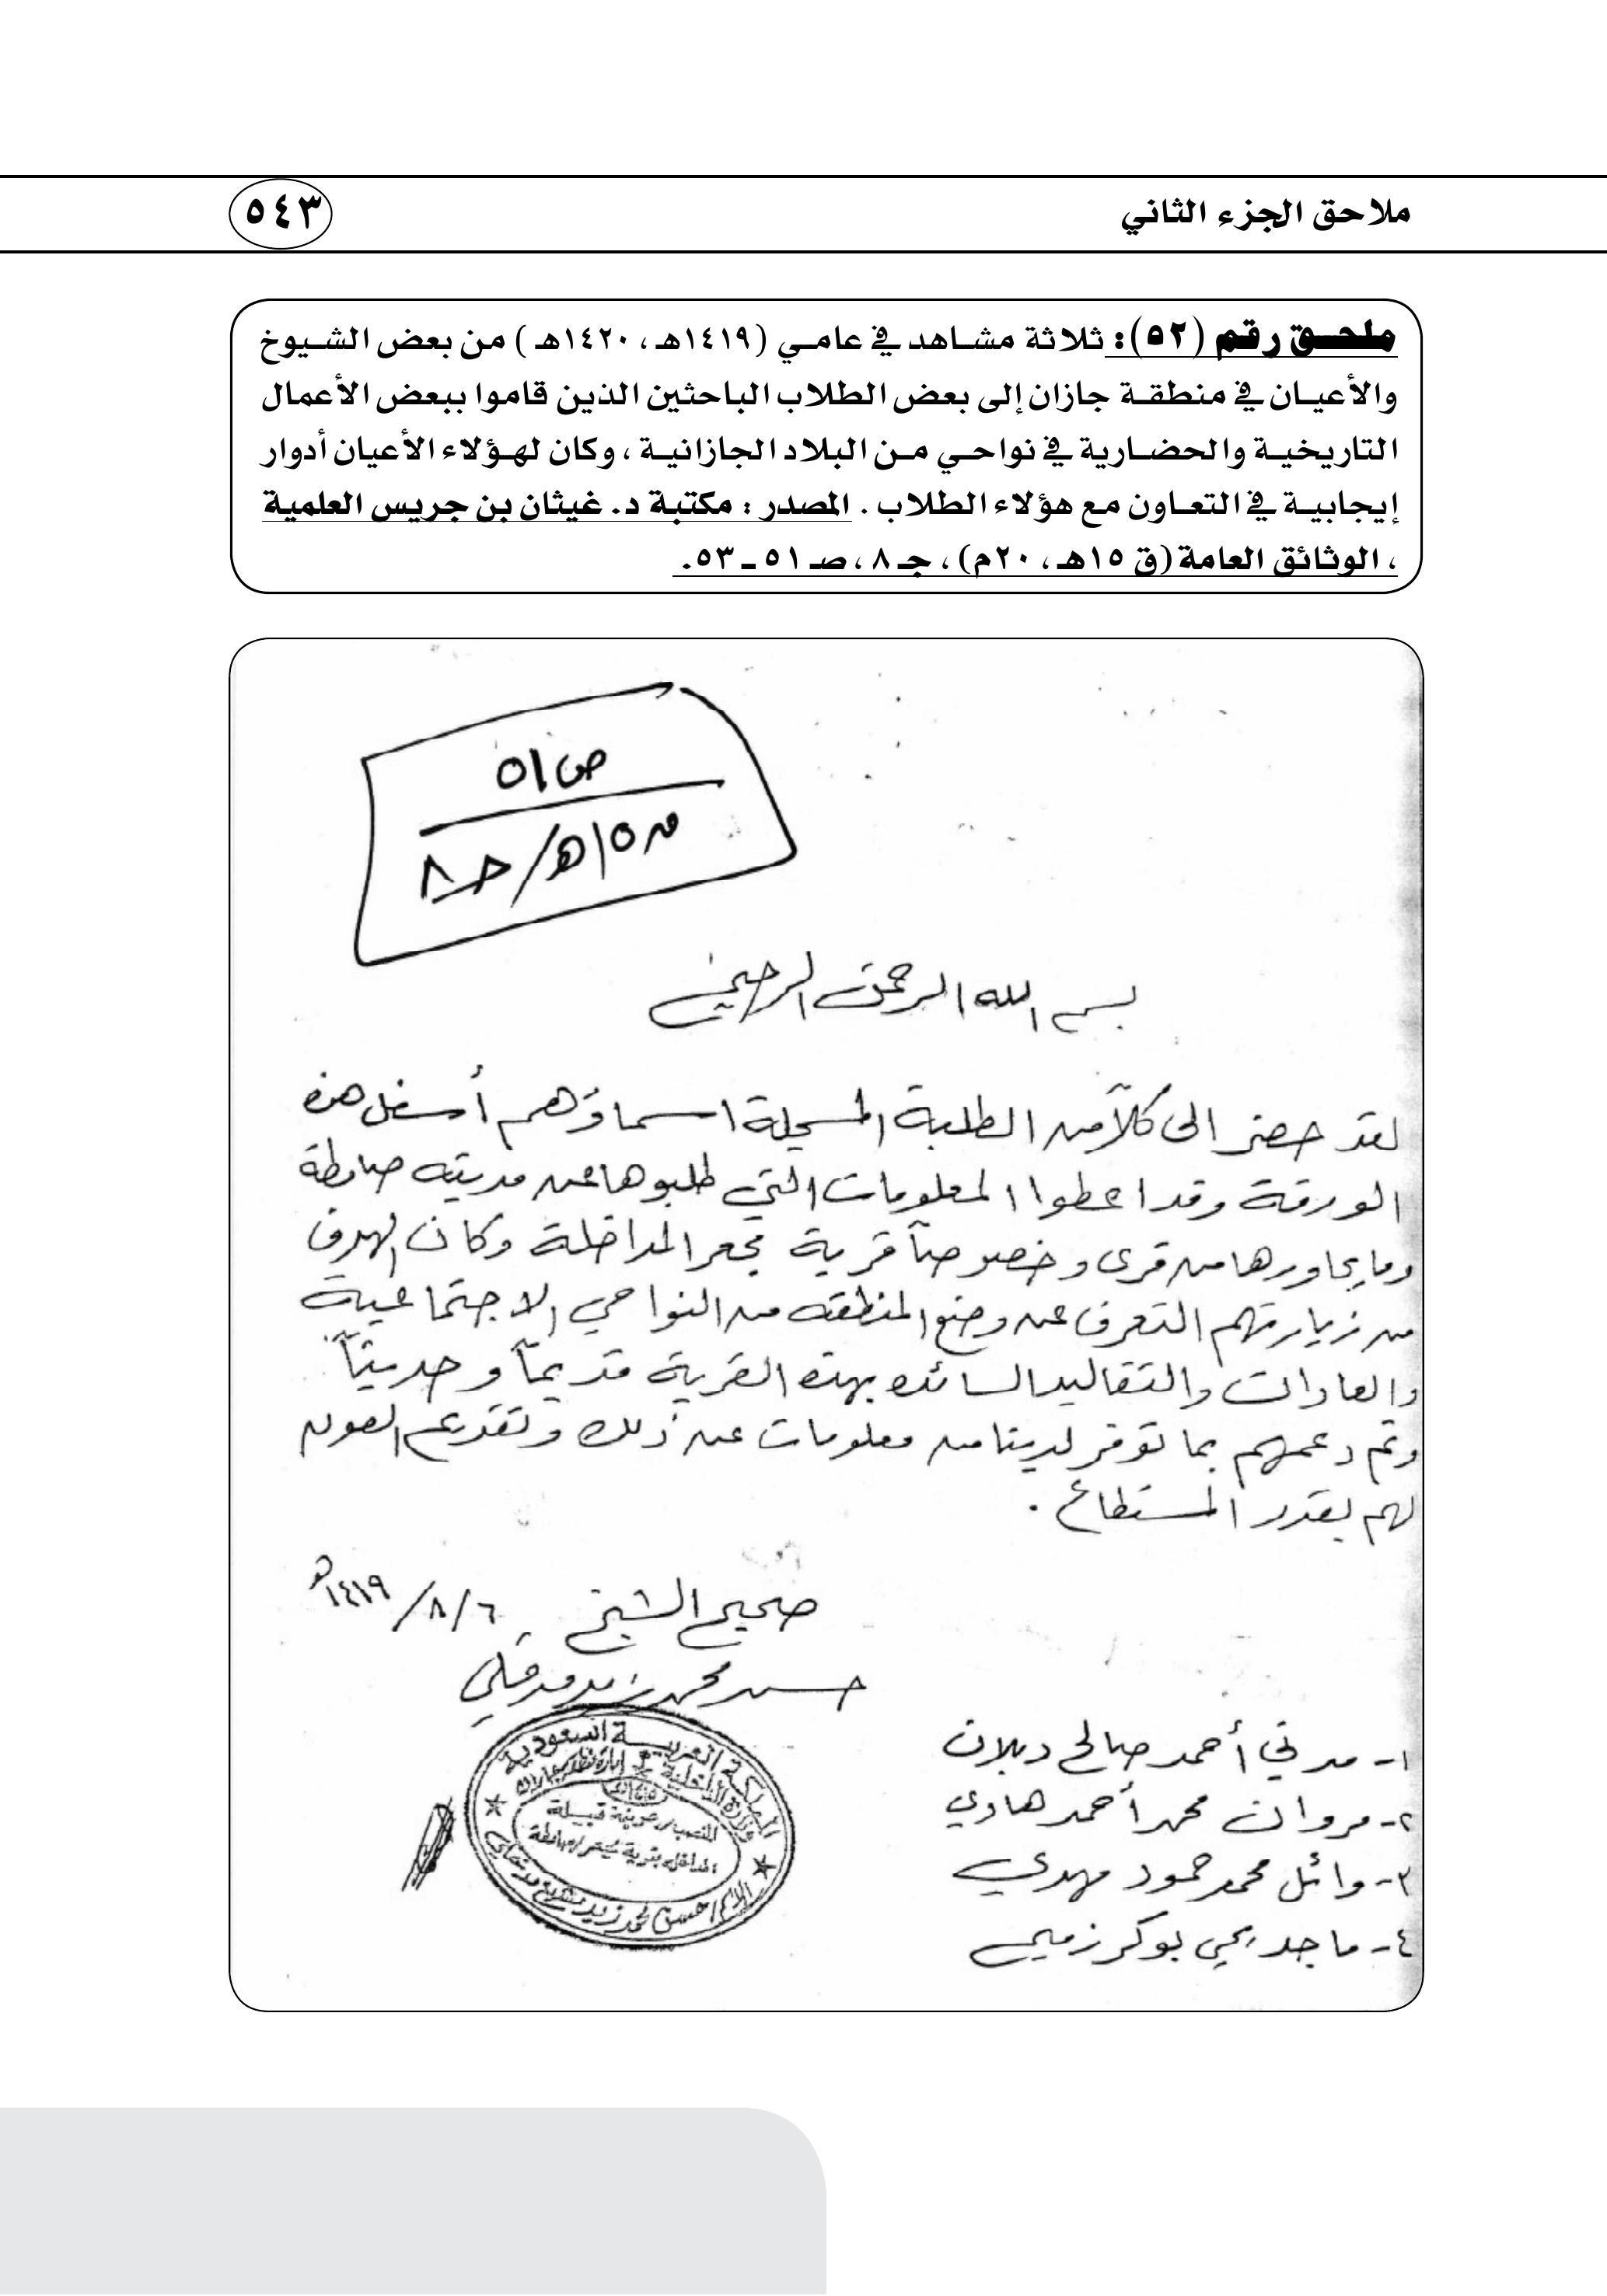 ملاحق الجزء الثاني
٥٤٣
ملحق رقم (٥٢): ثلاثة مشاهد في عامي (١٤١٩هـ، ١٤٢٠هـ) من بعض الشيوخ
والأعيان في منطقة جازان إلى بعض الطلاب الباحثين الذين قاموا ببعض الأعمال
التاريخية والحضارية في نواحي من البلاد الجازانية، وكان لهؤلاء الأعيان أدوار
إيجابية في التعاون مع هؤلاء الطلاب. المصدر: مكتبة د. غيثان بن جريس العلمية
، الوثائق العامة (ق ١٥هـ، ٢٠م)، جـ ٨، صـ ٥١ ـ ٥٣.
ص ٥١
ق ١٥هـ/ حـ ٨
بسم الله الرحمن الرحيم
لقد حضر الى كلاً من الطلبة المسجلة اسماؤهم أسفل هذه
الورقة وقد اعطوا المعلومات التي طلبوها عن مدينة صامطة
وما يجاورها من قرى وخصوصاً قرية مجعر المداخلة وكان الهدف
من زيارتهم التعرف عن وضع المنطقه من النواحي الاجتماعية
والعادات والتقاليد السائده بهذه القرية قديماً وحديثاً
وتم دعمهم بما توفر لدينا من معلومات عن ذلك وتقديم العون
لهم بقدر المستطاع .
صحيح الشيخ ٦/٨/١٤١٩هـ
حسن محمد زيد مدخلي
المملكة العربية السعودية
وزارة الداخلية
قبيلة
المداخلة بقرية مجعر / صامطة
حسن محمد زيد
١- مدني أحمد صالح دبلان
٢- مروان محمد أحمد هادي
٣- وائل محمد حمود مهدي
٤- ماجد يحي بوكر زميم